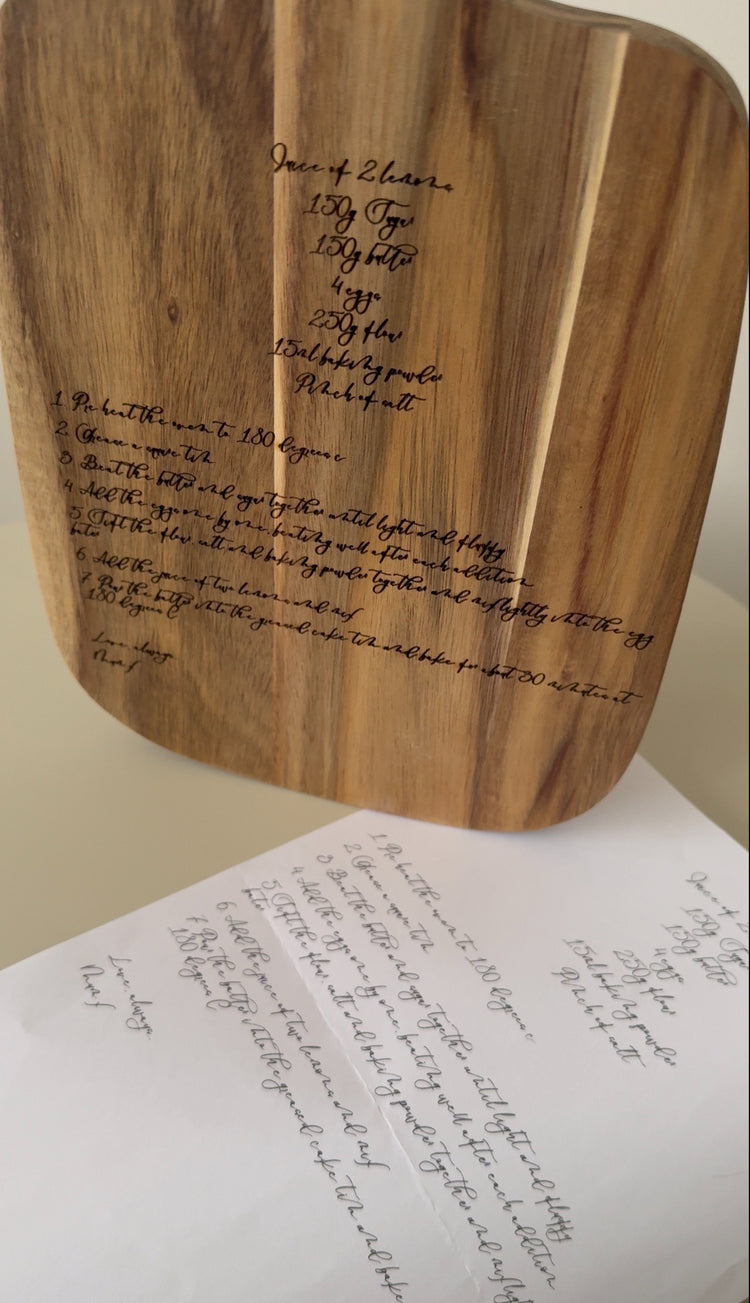 Juice of 2 lemons
150g Sugar
150g butter
4 eggs
250g flour
15ml baking powder
Pinch of salt
1. Pre heat the oven to 180 degrees c
2. Grease a square tin
3. Beat the butter and sugar together until light and fluffy
4. Add the eggs one by one, beating well after each addition
5. Sift the flour, salt and baking powder together and mix lightly into the egg
batter
6. Add the juice of two lemons and mix
7. Pour the batter into the greased cake tin and bake for about 30 minutes at
180 degrees C
Love always
Mum x
Juice of 2
150g Sugar
150g butter
4 eggs
250g flour
15ml baking powder
Pinch of salt
1. Pre heat the oven to 180 degrees c
2. Grease a square tin
3. Beat the butter and sugar together until light and fluffy
4. Add the eggs one by one, beating well after each addition
5. Sift the flour, salt and baking powder together and mix
batter
6. Add the juice of two lemons and mix
7. Pour the batter into the greased cake tin and bake
180 degrees C
Love always
Mum x